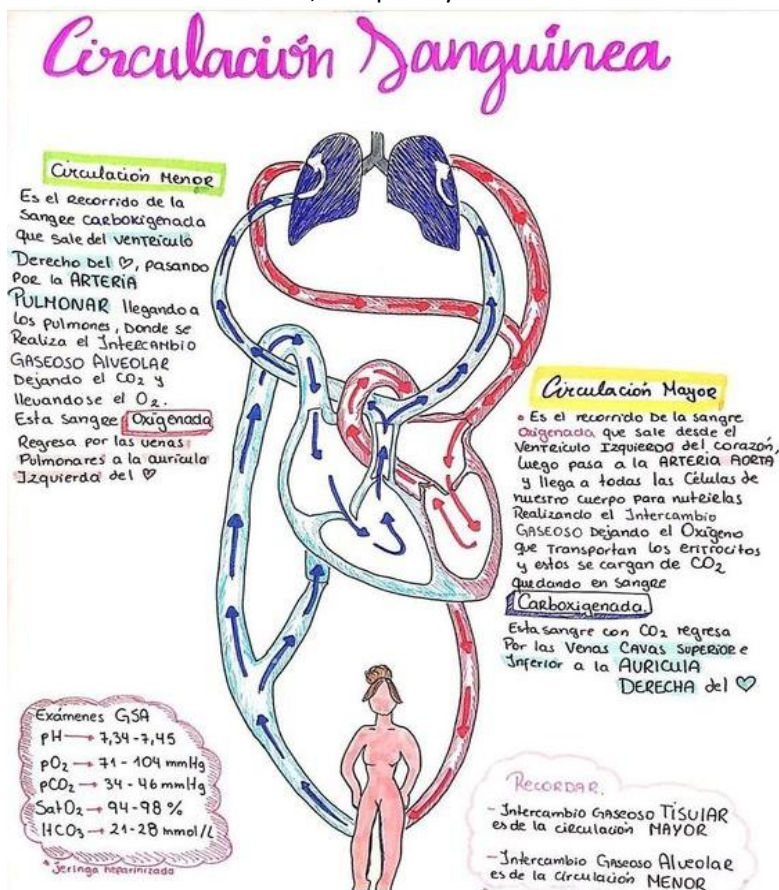 Circulación Sanguínea
Circulación Menor
Es el recorrido de la
Sangre carboxigenada
que sale del ventrículo
Derecho Del ♡, pasando
Por la ARTERIA
PULMONAR llegando a
los pulmones, Donde se
Realiza el Intercambio
GASEOSO AlVEOLAR
Dejando el CO₂ y
llevandose el O₂.
Esta sangre Oxigenada
Regresa por las venas
Pulmonares a la aurícula
Izquierda del ♡
Circulación Mayor
• Es el recorrido De la sangre
Oxigenada que sale desde el
Ventrículo Izquierdo del corazón,
luego pasa a la ARTERIA AORTA
y llega a todas las Células de
nuestro cuerpo para nutrirlas
Realizando el Intercambio
GASEOSO Dejando el Oxígeno
que Transportan los eritrocitos
y estos se cargan de CO₂
quedando en sangre
Carboxigenada.
Esta sangre con CO₂ regresa
Por las Venas CAVAS SUPERIOR e
Inferior a la AURICULA
DERECHA del ♡
Exámenes GSA
pH → 7,34 - 7,45
pO₂ → 71 - 104 mmHg
pCO₂ → 34 - 46 mmHg
SatO₂ → 94 - 98 %
HCO₃ → 21 - 28 mmol/L
* Jeringa heparinizada
RECORDAR.
- Intercambio Gaseoso TISULAR
es de la circulación MAYOR
- Intercambio Gaseoso Alveolar
es de la circulación MENOR